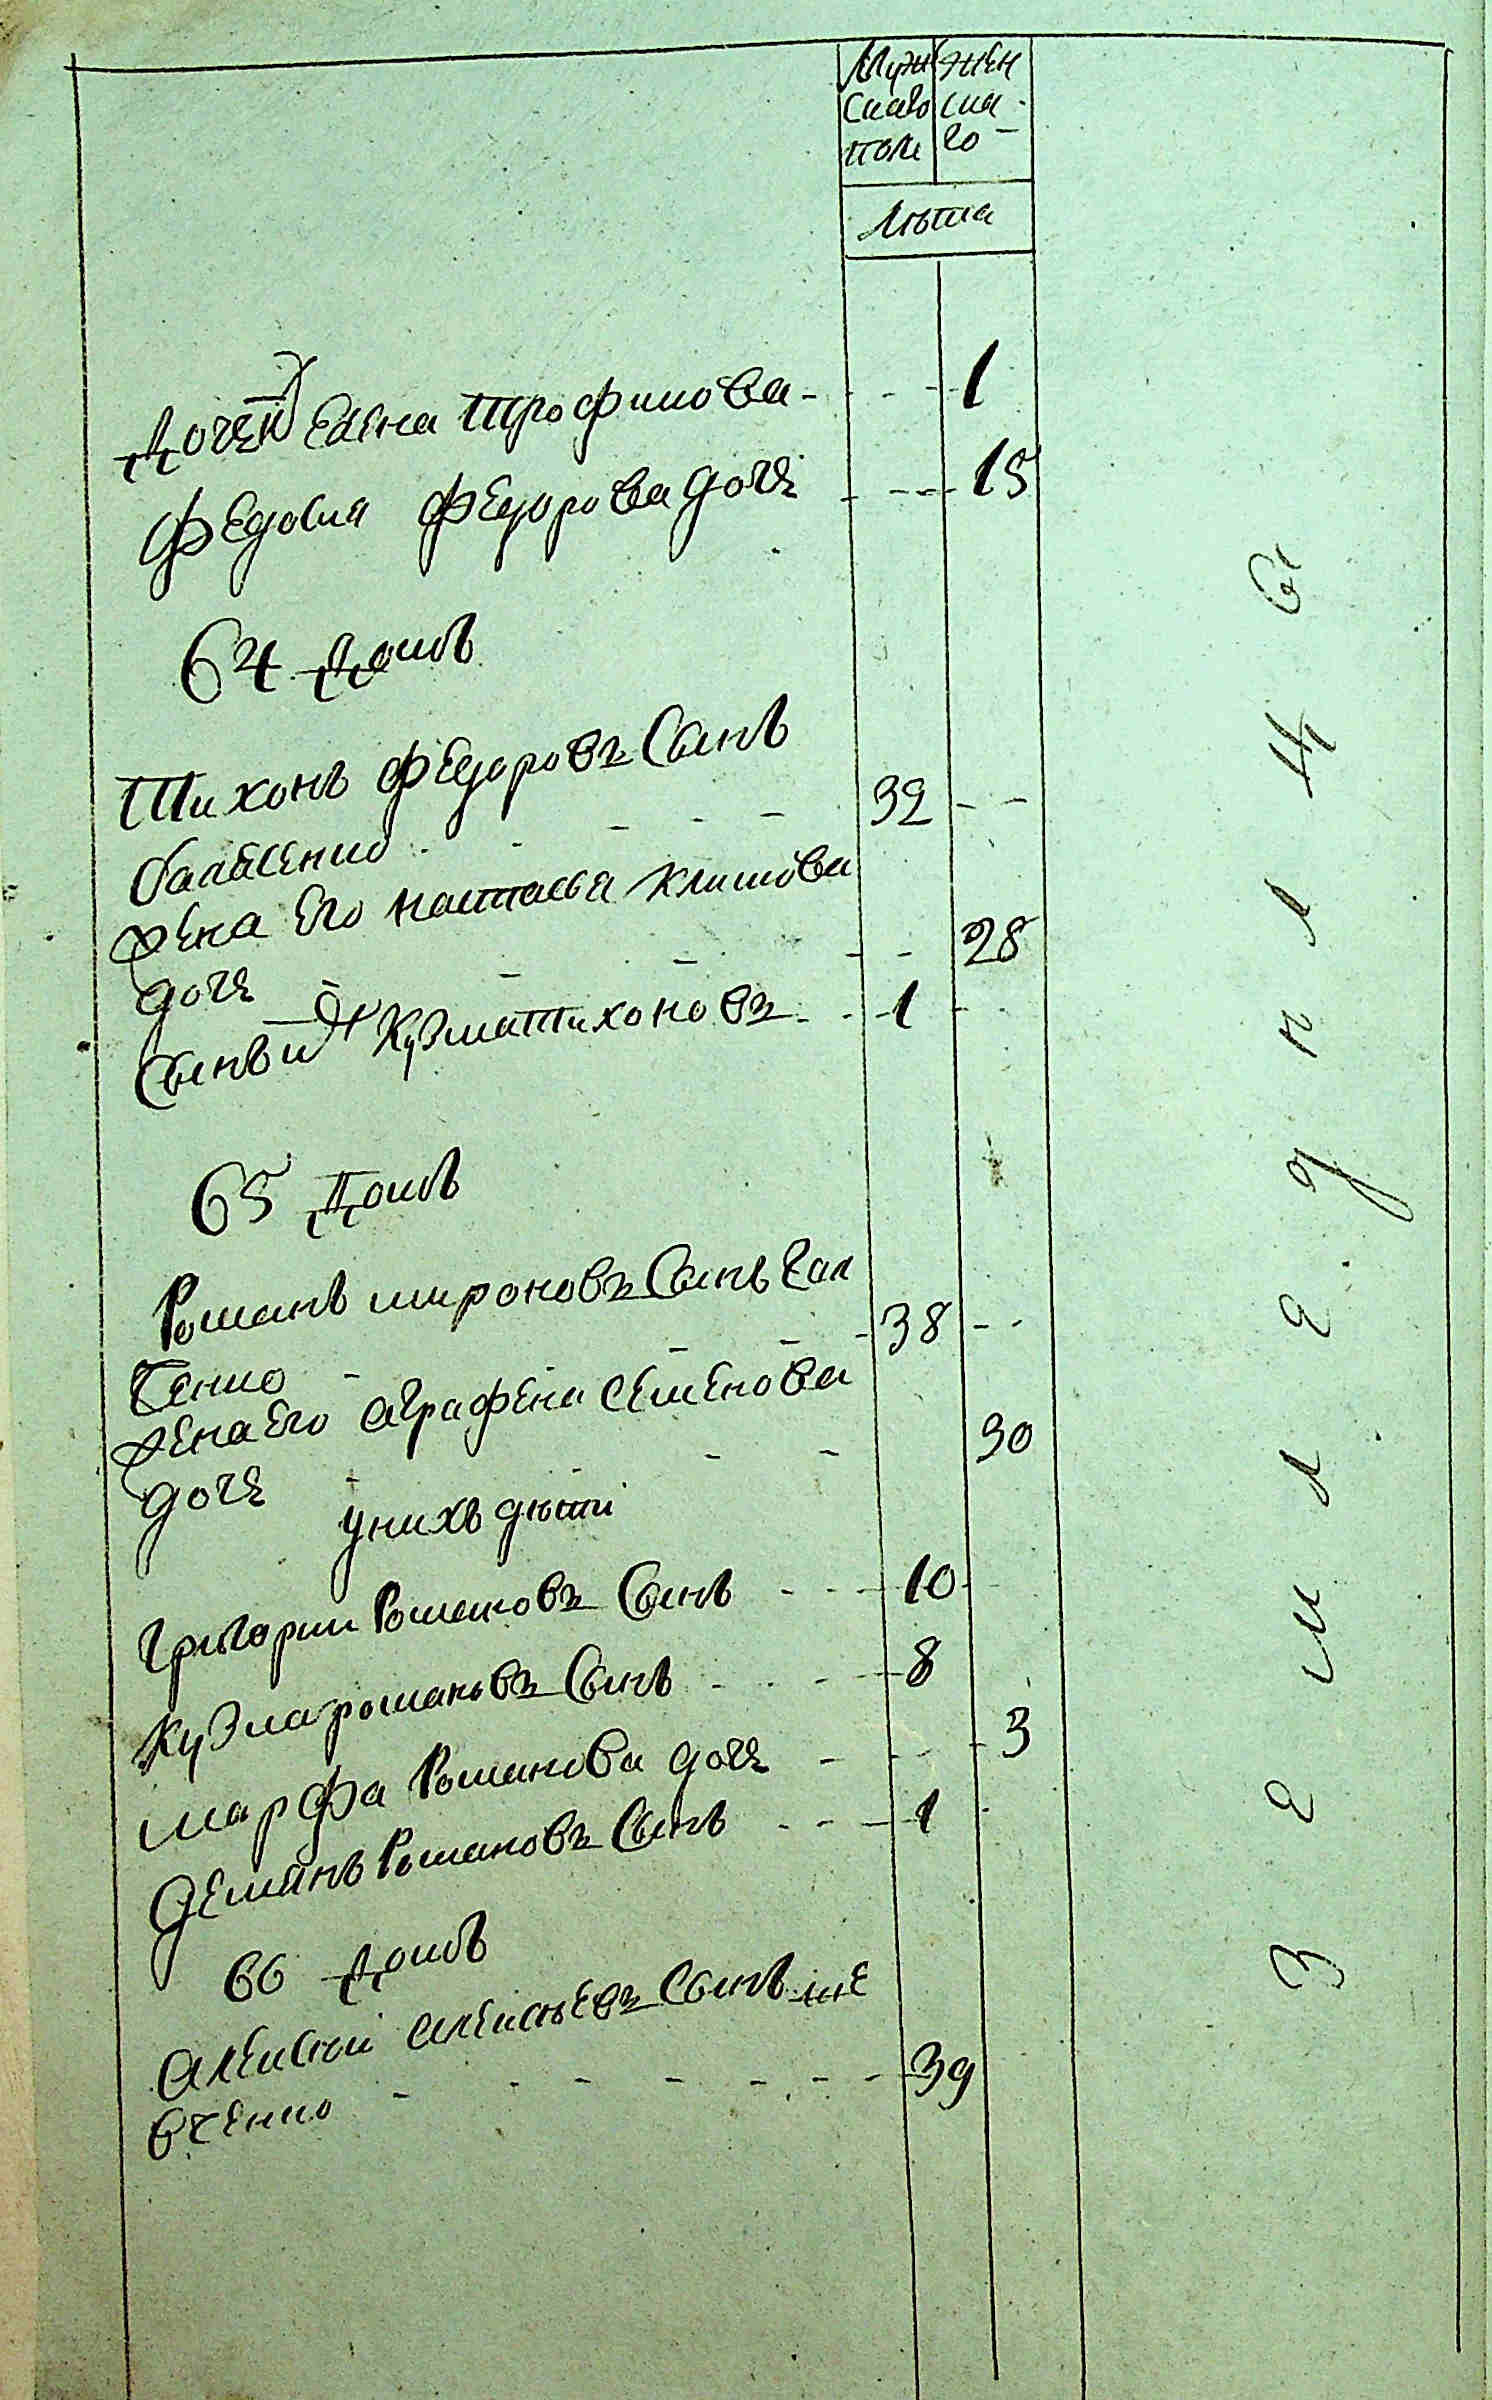 Муж жен
скаго ска
пола го
Лѣта
Дочь их Елена Трофимова 1
Федосия Федорова дочь 15
64 Домъ
Тихонъ Федоровъ Сынъ
32
Жена Его Настасья Климова
дочь 28
Сынъ их Кузма Тихоновъ 1
65 Домъ
Романъ мироновъ Сынъ Гал
ченко 38
Жена Его Аграфена Семенова
дочь 30
у нихъ дети
Григории Романовъ Сынъ 10
Кузма романовъ Сынъ 8
марфа Романова дочь 3
Демянъ Романовъ Сынъ 1
66 Домъ
Алексей Алексѣевъ Сынъ ше
вченко 39
Земледельцы